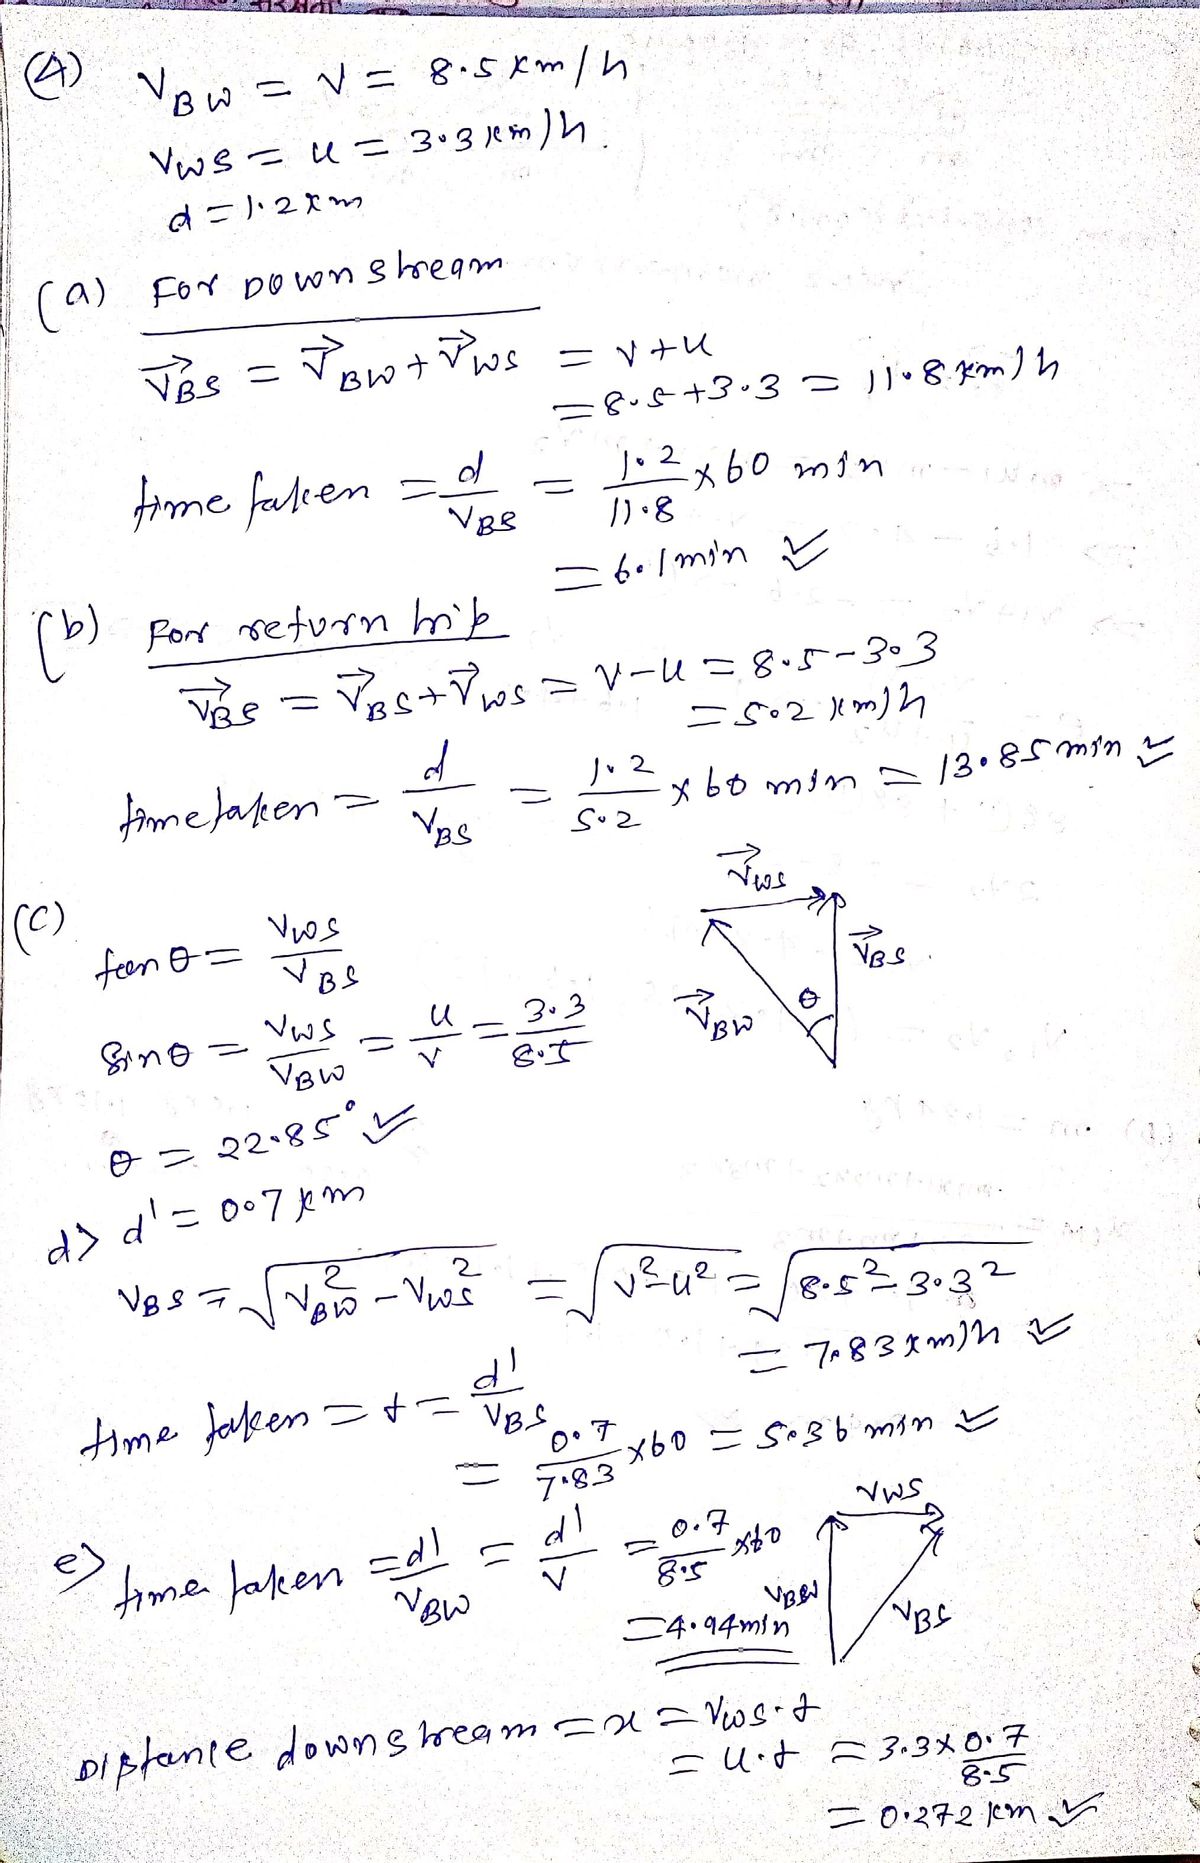 (4) V_BW = V = 8.5 km/h
V_WS = u = 3.3 km/h.
d = 1.2 km
(a) For Downstream
V⃗_BS = V⃗_BW + V⃗_WS = v + u
= 8.5 + 3.3 = 11.8 km/h
time taken = d/V_BS = 1.2/11.8 × 60 min
= 6.1 min ✓
(b) For return trip
V⃗_BS = V⃗_BS + V⃗_WS = v - u = 8.5 - 3.3
= 5.2 km/h
time taken = d/V_BS = 1.2/5.2 × 60 min = 13.85 min ✓
V⃗_WS
(c) tan θ = V_WS/V_BS
V⃗_BS
θ
V⃗_BW
Sin θ = V_WS/V_BW = u/v = 3.3/8.5
θ = 22.85° ✓
d> d' = 0.7 km
V_BS = √(V_BW² - V_WS²) = √(v² - u²) = √(8.5² - 3.3²)
= 7.83 km/h ✓
time taken = t = d'/V_BS
= 0.7/7.83 × 60 = 5.36 min ✓
V_WS
e> time taken = d'/V_BW = d'/v = 0.7/8.5 × 60
V_BW
V_BS
= 4.94 min
Distance downstream = x = V_WS.t
= u.t = 3.3 × 0.7/8.5
= 0.272 km ✓